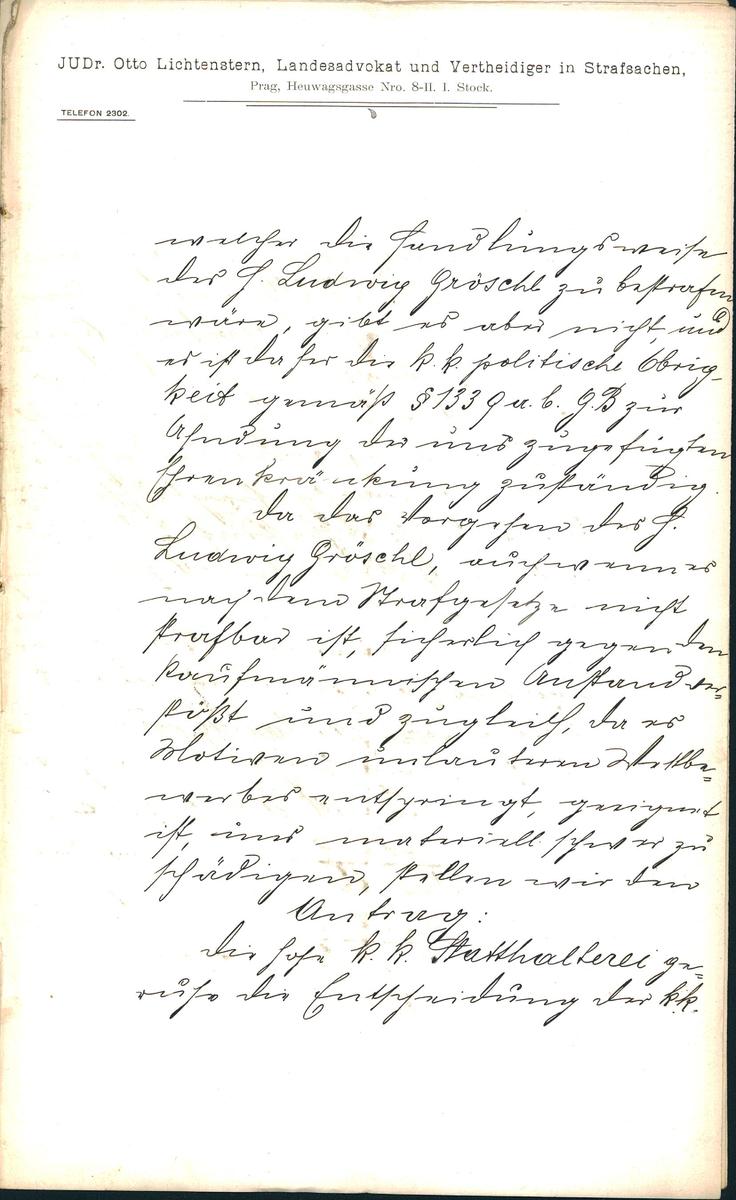 JUDr. Otto Lichtenstern, Landesadvokat und Vertheidiger in Strafsachen,
Prag, Heuwagsgasse Nro. 8-II. I. Stock.
TELEFON 2302.
welcher die Handlungsweise
des H. Ludwig Gröschl zu bestrafen
wäre, gibt es aber nicht, und
es ist daher die k. k. politische Obrig-
keit gemäß § 1339 a. b. G.B zur
Ahndung der uns zugefügten
Ehrenkränkung zuständig.
Da das Vorgehen des H.
Ludwig Gröschl, auch wenn es
nach dem Strafgesetze nicht
strafbar ist, sicherlich gegen den
kaufmännischen Anstand ver=
stößt und zugleich, da es
Motiven unlauteren Wettbe=
werbes entspringt, geeignet
ist, uns materiell schwer zu
schädigen, stellen wir den
Antrag:
die hohe k. k. Statthalterei ge=
ruhe die Entscheidung der k.k.